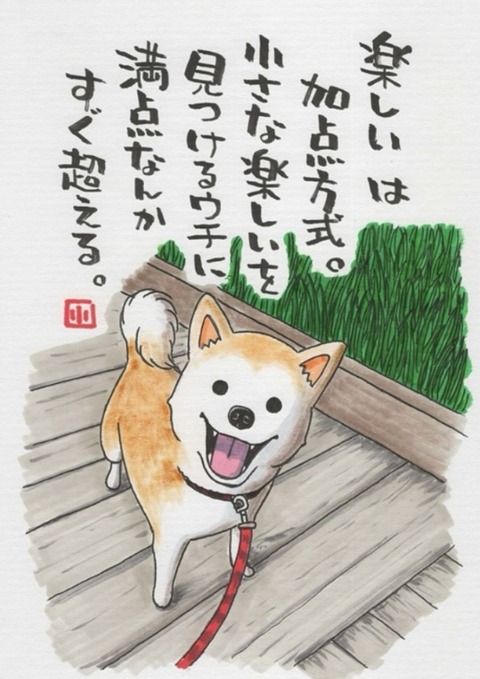 楽しいは
加点方式。
小さな楽しいを
見つけるウチに
満点なんか
すぐ超える。